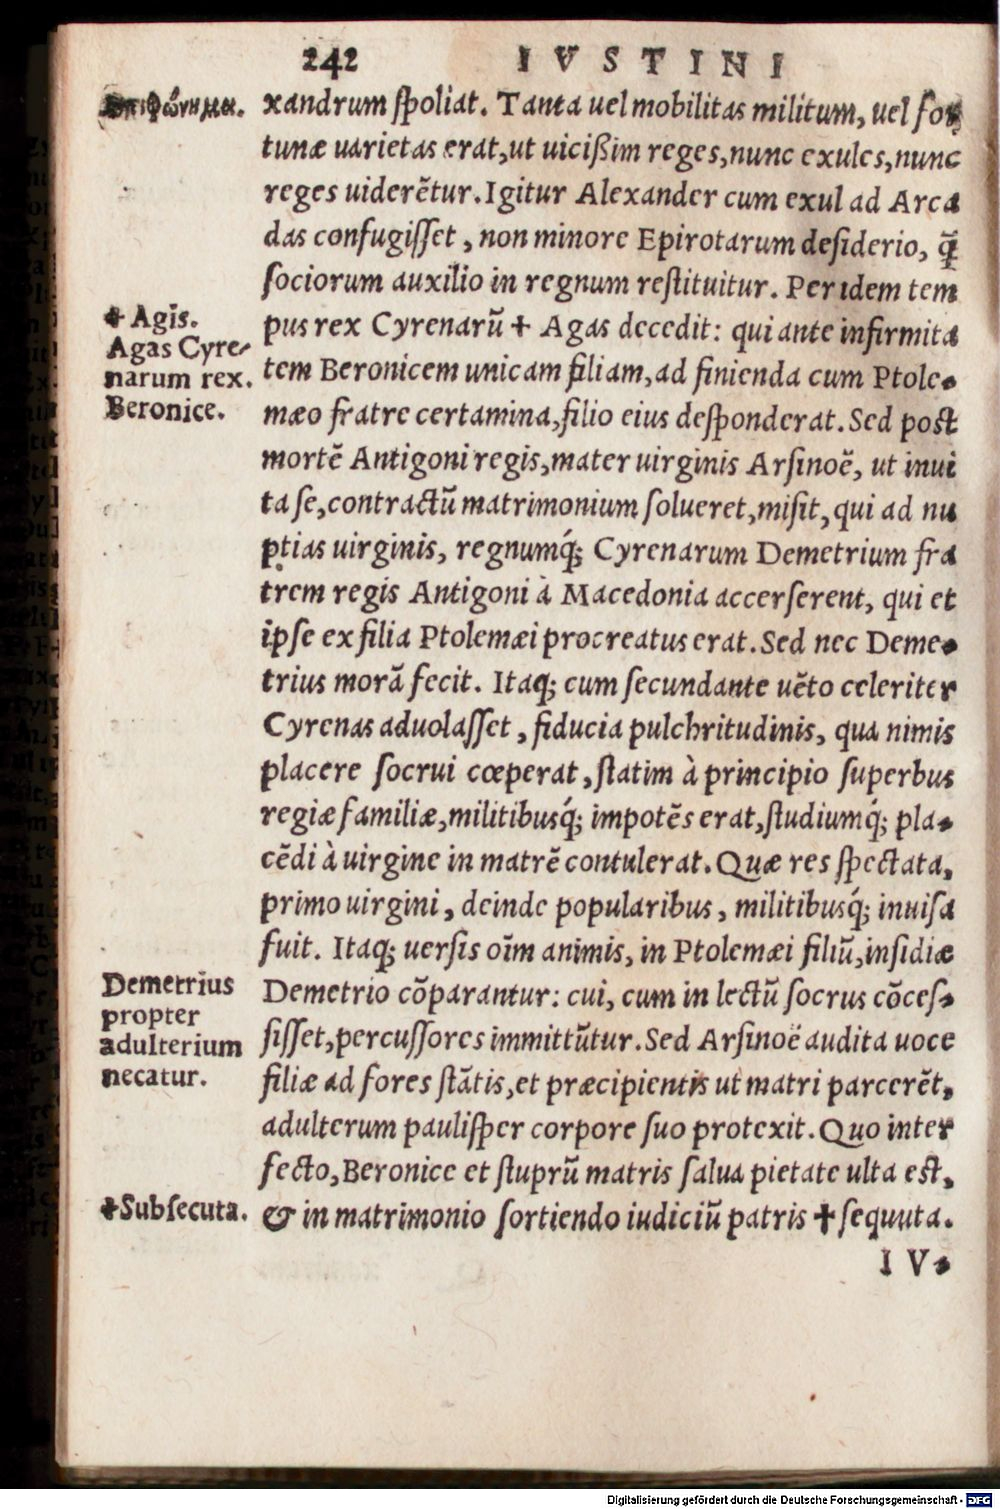 242 IVSTINI
Ἐπιφώνημα.
xandrum ſpoliat. Tanta uel mobilitas militum, uel for
tunæ uarietas erat, ut uiciſſim reges, nunc exules, nunc
reges uiderẽtur. Igitur Alexander cum exul ad Arca
das confugiſſet, non minore Epirotarum deſiderio, q̃
ſociorum auxilio in regnum reſtituitur. Per idem tem
✝ Agis.
Agas Cyre-
narum rex.
Beronice.
pus rex Cyrenarũ ✝ Agas decedit: qui ante infirmita
tem Beronicem unicam filiam, ad finienda cum Ptole-
mæo fratre certamina, filio eius deſponderat. Sed poſt
mortẽ Antigoni regis, mater uirginis Arſinoë, ut inui
ta ſe, contractũ matrimonium ſolueret, miſit, qui ad nu
ptias uirginis, regnumq́; Cyrenarum Demetrium fra
trem regis Antigoni à Macedonia accerſerent, qui et
ipſe ex filia Ptolemæi procreatus erat. Sed nec Deme-
trius morã fecit. Itaq; cum ſecundante uẽto celeriter
Cyrenas aduolaſſet, fiducia pulchritudinis, qua nimis
placere ſocrui cœperat, ſtatim à principio ſuperbus
regiæ familiæ, militibusq́; impotẽs erat, ſtudiumq́; pla-
cẽdi à uirgine in matrẽ contulerat. Quæ res ſpectata,
primo uirgini, deinde popularibus, militibusq́; inuiſa
fuit. Itaq; uerſis oĩm animis, in Ptolemæi filiũ, inſidiæ
Demetrius
propter
adulterium
necatur.
Demetrio cõparantur: cui, cum in lectũ ſocrus cõceſ-
ſiſſet, percuſſores immittũtur. Sed Arſinoë audita uoce
filiæ ad fores ſtãtis, et præcipientis ut matri parcerẽt,
adulterum pauliſper corpore ſuo protexit. Quo inter
fecto, Beronice et ſtuprũ matris ſalua pietate ulta eſt,
✝ Subſecuta.
& in matrimonio ſortiendo iudiciũ patris ✝ ſequuta.
IV-
Digitalisierung gefördert durch die Deutsche Forschungsgemeinschaft - DFG